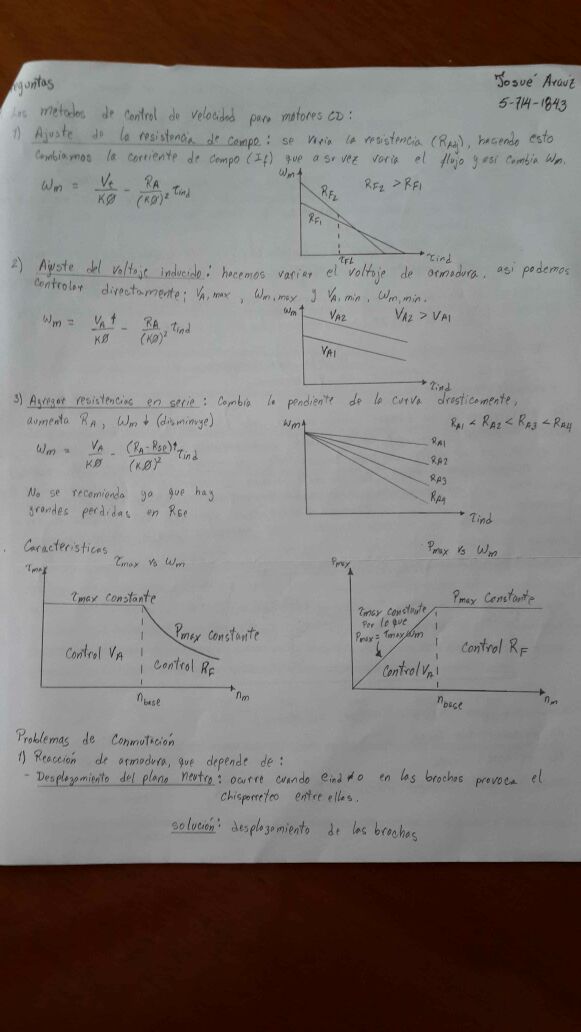 eguntas
Josué Arauz
5-714-1843
Los métodos de control de velocidad para motores CD:
1) Ajuste de la resistencia de campo: se varia la resistencia (RAdj), haciendo esto
cambiamos la corriente de campo (If) que a su vez varia el flujo y asi cambia ωm.
ωm = Vt/KØ - RA/(KØ)² τind
ωm
RF2
RF2 > RF1
RF1
τFL
τind
2) Ajuste del voltaje inducido: hacemos variar el voltaje de armadura, asi podemos
controlar directamente; VA,max, ωm,max y VA,min, ωm,min.
ωm = VA↑/KØ - RA/(KØ)² τind
ωm
VA2
VA2 > VA1
VA1
τind
3) Agregar resistencias en serie: Cambia la pendiente de la curva drasticamente,
aumenta RA, ωm ↓ (disminuye)
RA1 < RA2 < RA3 < RA4
ωm = VA/KØ - (RA-RSe)↑/(KØ)² τind
ωm
RA1
RA2
RA3
RA4
τind
No se recomienda ya que hay
grandes perdidas en RSe
Caracteristicas
τmax vs ωm
Pmax vs ωm
τmax
τmax constante
Pmax constante
Control VA
Control RF
nbase
nm
Pmax
τmax constante
por lo que
Pmax = τmax ωm
Pmax constante
Control VA
Control RF
nbase
nm
Problemas de Conmutación
1) Reacción de armadura, que depende de:
- Desplazamiento del plano neutro: ocurre cuando eind≠0 en las brochas provoca el
chisporreteo entre ellas.
solución: desplazamiento de las brochas